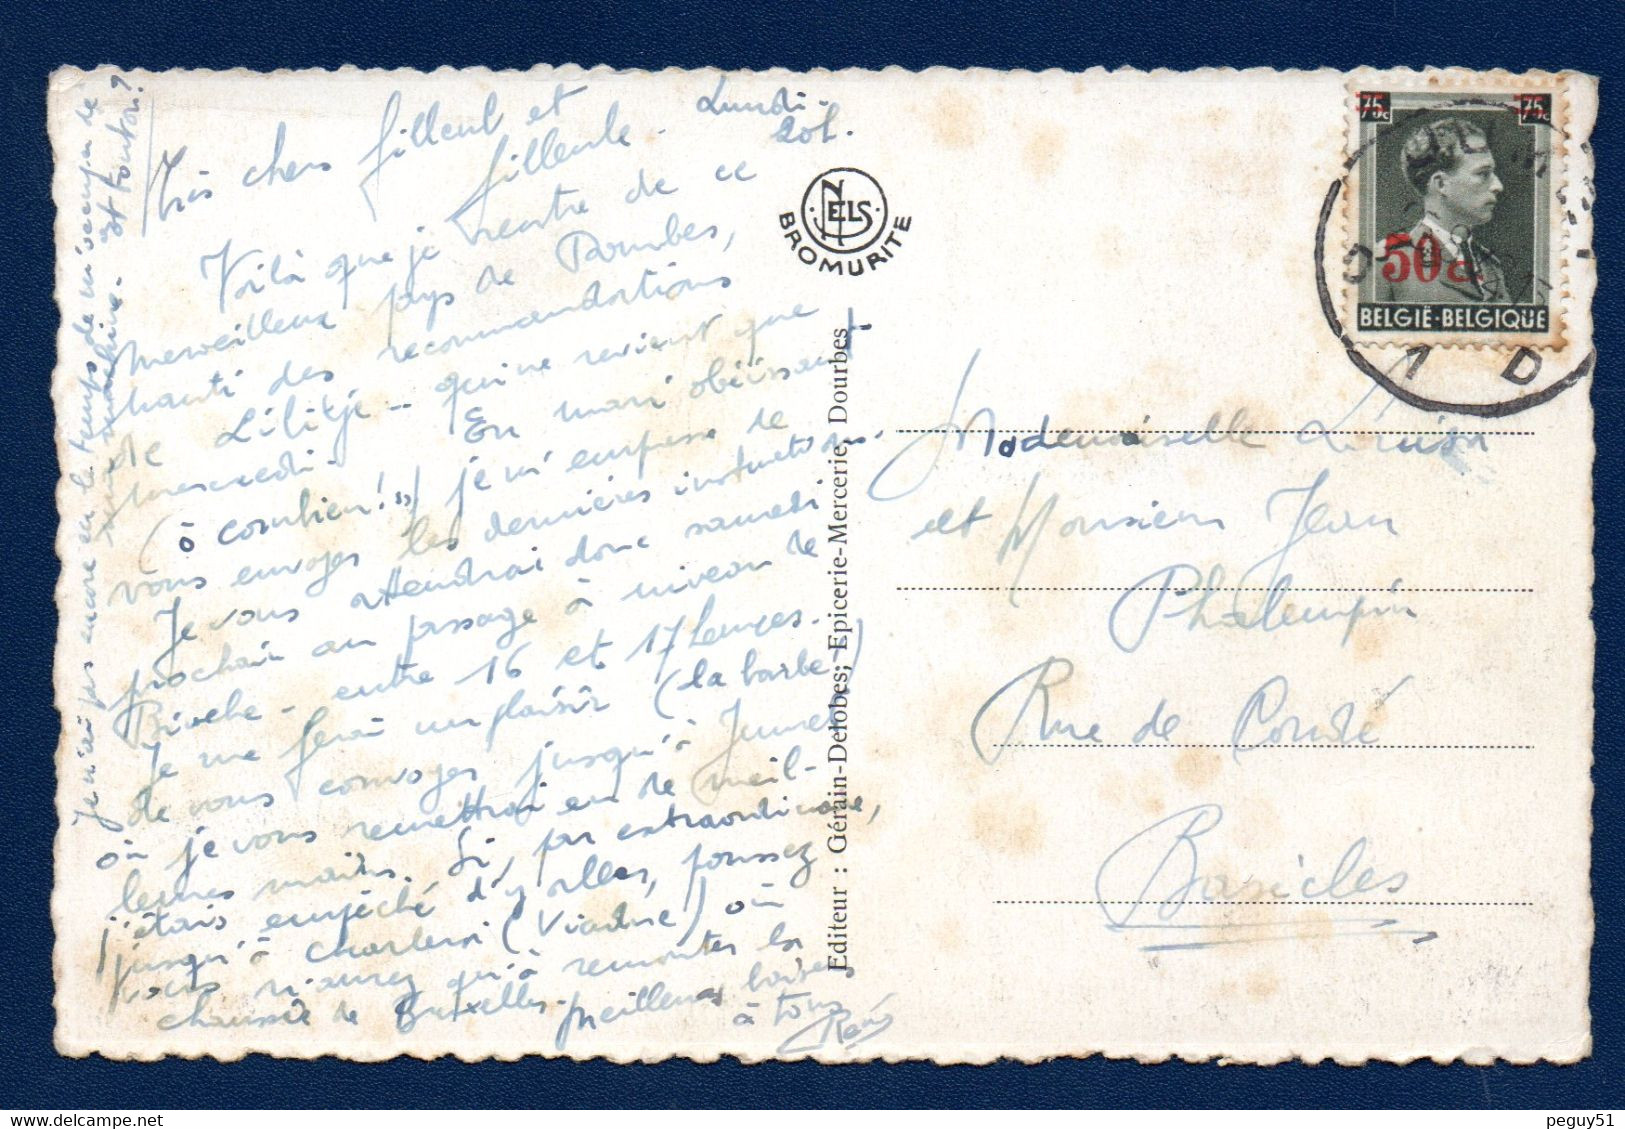 Lundi
20h.
Très chers filleul et
filleule.
Voilà que je rentre de ce
merveilleux pays de Dourbes,
nanti des recommandations
de Lilitje – qui ne revient que
mercredi. En mari obéissant
(ô combien!») je m'empresse de
vous envoyer les dernières instructions.
Je vous attendrai donc samedi
prochain au passage à niveau de
Binche – entre 16 et 17 heures.
Je me ferai un plaisir (la barbe!)
de vous convoyer jusqu'à Jumet
où je vous remettrai en de meil-
leures mains. Si, par extraordinaire,
j'étais empêché d'y aller, poussez
jusqu'à Charleroi (Viaduc) où
vous n'aurez qu'à remonter la
chaussée de Bruxelles. Meilleurs baisers
à tous
René
Je n'ai pas encore eu le temps de m'occuper de
machine. Et tonton?
NELS
BROMURITE
Editeur : Gérain-Delobes; Epicerie-Mercerie, Dourbes
75c 75c
50c
BELGIË-BELGIQUE
1 D
Mademoiselle Louisa
et Monsieur Jean
Phalempin
Rue de Condé
Basècles
peguy51